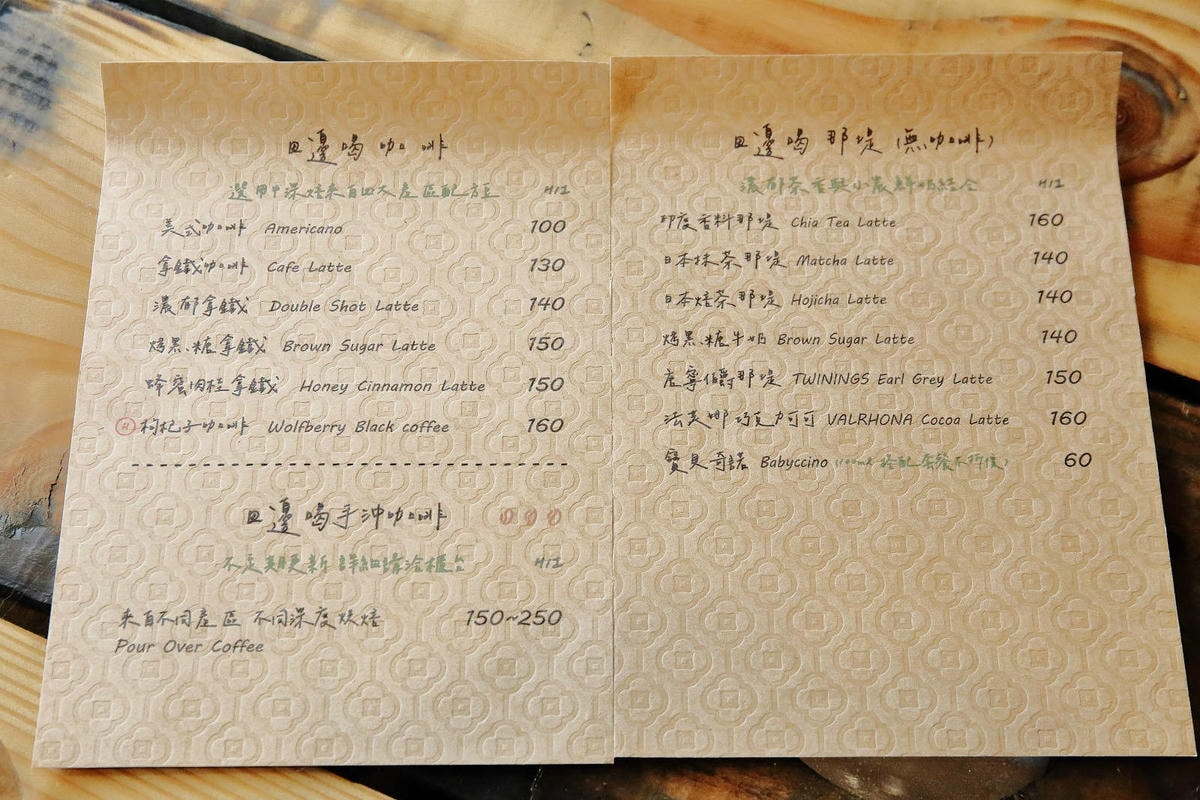 田邊喝咖啡
選用中深焙來自四大產區配方豆 H/I
美式咖啡 Americano 100
拿鐵咖啡 Cafe Latte 130
濃郁拿鐵 Double Shot Latte 140
烤黑糖拿鐵 Brown Sugar Latte 150
蜂蜜肉桂拿鐵 Honey Cinnamon Latte 150
H 枸杞子咖啡 Wolfberry Black coffee 160
田邊喝手沖咖啡
不定期更新 詳細請洽櫃台 H/I
來自不同產區 不同深度烘焙 150~250
Pour Over Coffee
田邊喝那堤(無咖啡)
濃郁茶香與小農鮮奶結合 H/I
印度香料那堤 Chia Tea Latte 160
日本抹茶那堤 Matcha Latte 140
日本焙茶那堤 Hojicha Latte 140
烤黑糖牛奶 Brown Sugar Latte 140
唐寧伯爵那堤 TWININGS Earl Grey Latte 150
法芙娜巧克力可可 VALRHONA Cocoa Latte 160
寶貝奇諾 Babyccino (100ml 搭配套餐不折價) 60